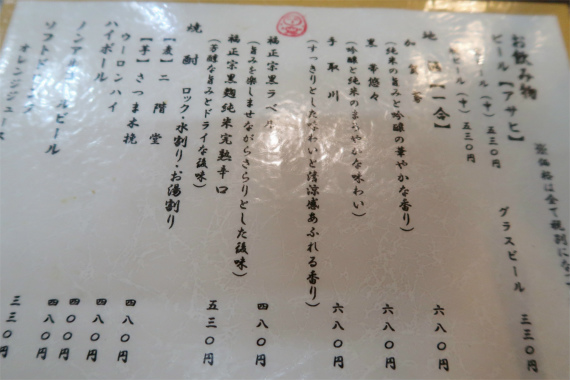 ※価格は全て税別にな
お飲み物
ビール【アサヒ】 グラスビール 三三〇円
ビール(中) 五三〇円
ビール(中) 五三〇円
地 【一合】
加 (純米の旨みと吟醸の華やかな香り) 六八〇円
黒帯悠々 (吟醸と純米のまろやかな味わい) 六八〇円
手取川 (すっきりとした味わいと清涼感あふれる香り) 六八〇円
福正宗黒ラベル (旨みを楽しませながらさらりとした後味) 四八〇円
福正宗黒麹純米完熟辛口 (芳醇な旨みとドライな後味) 五三〇円
焼酎 ロック・水割り・お湯割り
【麦】二階堂
【芋】さつま木挽 四八〇円
ウーロンハイ 四八〇円
ハイボール 四八〇円
ノンアルコールビール 四八〇円
ソフトドリンク 三三〇円
オレンジジュース